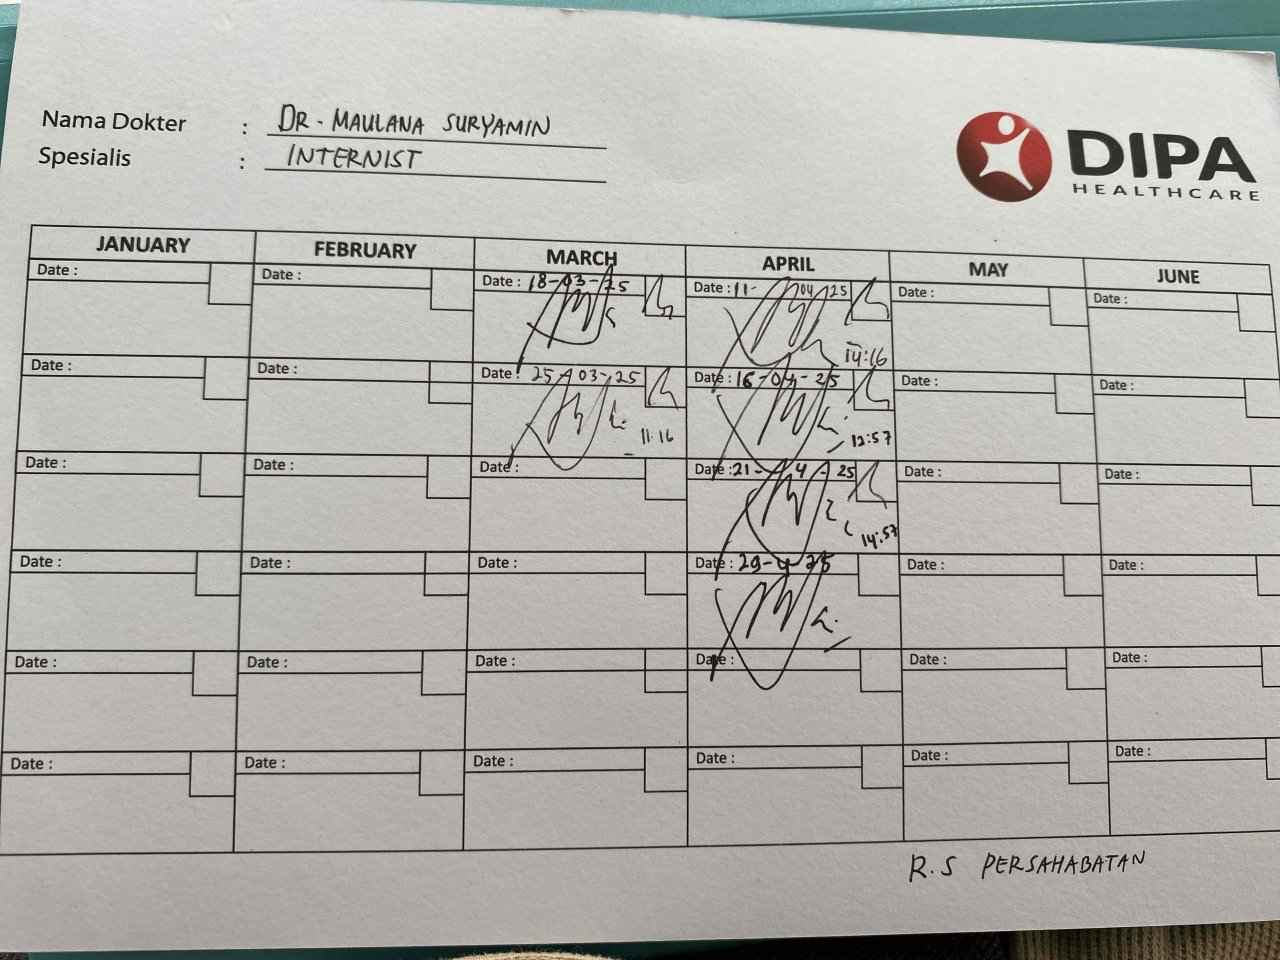 Nama Dokter : DR. MAULANA SURYAMIN
Spesialis : INTERNIST
DIPA
HEALTHCARE
JANUARY FEBRUARY MARCH APRIL MAY JUNE
Date : Date : Date : 18-03-25 Date : 11-04-25 Date : Date :
14:16
Date : Date : Date : 25-03-25 Date : 16-04-25 Date : Date :
11:16 12:57
Date : Date : Date : Date : 21-4-25 Date : Date :
14:57
Date : Date : Date : Date : 29-4-25 Date : Date :
Date : Date : Date : Date : Date : Date :
Date : Date : Date : Date : Date : Date :
R.S PERSAHABATAN